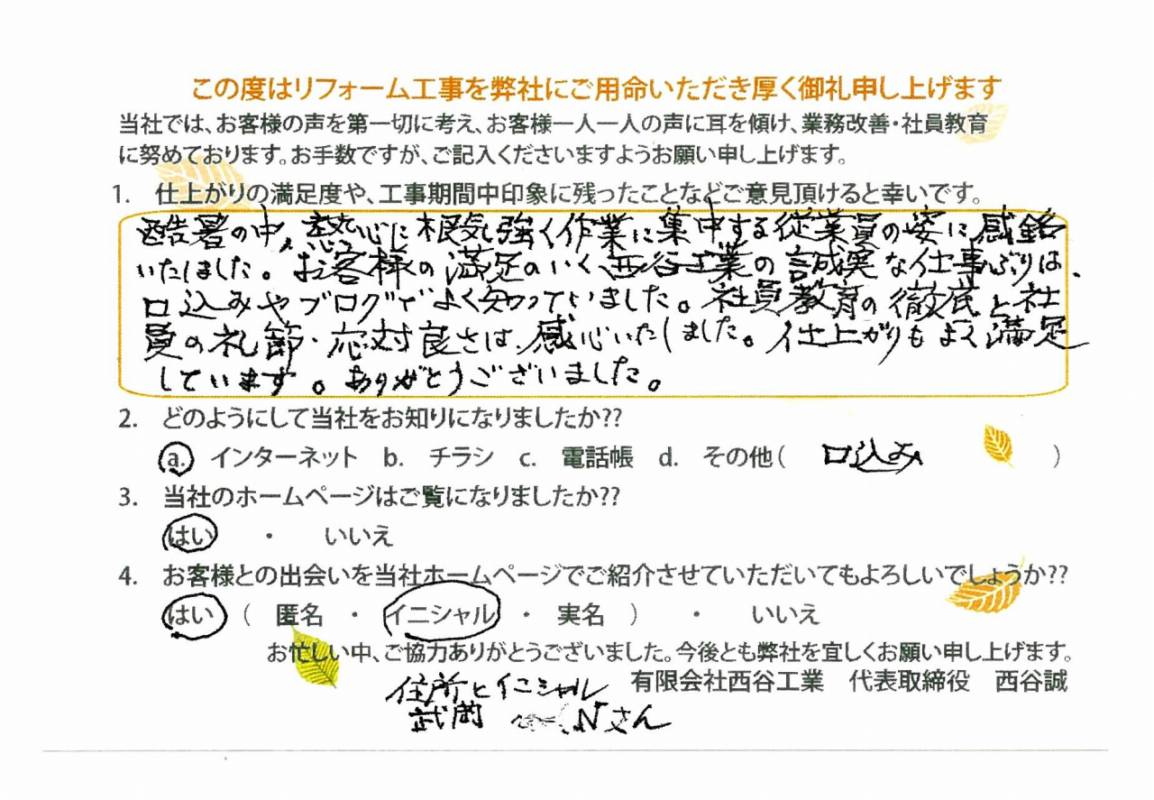 この度はリフォーム工事を弊社にご用命いただき厚く御礼申し上げます
当社では、お客様の声を第一切に考え、お客様一人一人の声に耳を傾け、業務改善・社員教育
に努めております。お手数ですが、ご記入くださいますようお願い申し上げます。
1. 仕上がりの満足度や、工事期間中印象に残ったことなどご意見頂けると幸いです。
酷暑の中、熱心に根気強く作業に集中する従業員の姿に感銘
いたしました。お客様の満足のいく、西谷工業の誠実な仕事ぶりは、
口込みやブログでよく知っていました。社員教育の徹底と社
員の礼節・応対良さは、感心いたしました。仕上がりもよく満足
しています。ありがとうございました。
2. どのようにして当社をお知りになりましたか??
a. インターネット b. チラシ c. 電話帳 d. その他( 口込み )
3. 当社のホームページはご覧になりましたか??
はい ・ いいえ
4. お客様との出会いを当社ホームページでご紹介させていただいてもよろしいでしょうか??
はい ( 匿名 ・ イニシャル ・ 実名 ) ・ いいえ
お忙しい中、ご協力ありがとうございました。今後とも弊社を宜しくお願い申し上げます。
有限会社西谷工業 代表取締役 西谷誠
住所とイニシャル
武岡 Nさん